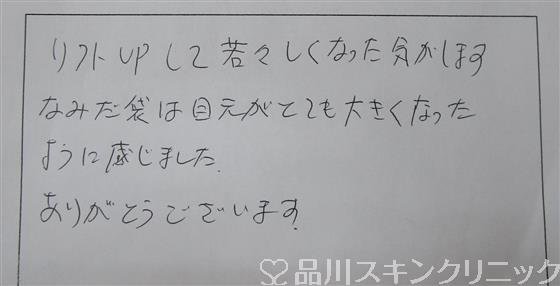 リフトUPして若々しくなった気がします
なみだ袋は目元がとても大きくなった
ように感じました.
ありがとうございます.
品川スキンクリニック